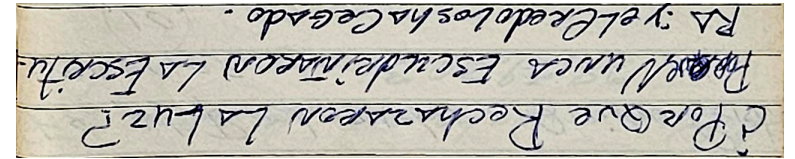 ¿PORQUE RechazaRON LA LUZ?
PORQUE NUNCA EscudRiÑaRON LA EscRitu-
RA: y el CRedo Los ha Cegado.